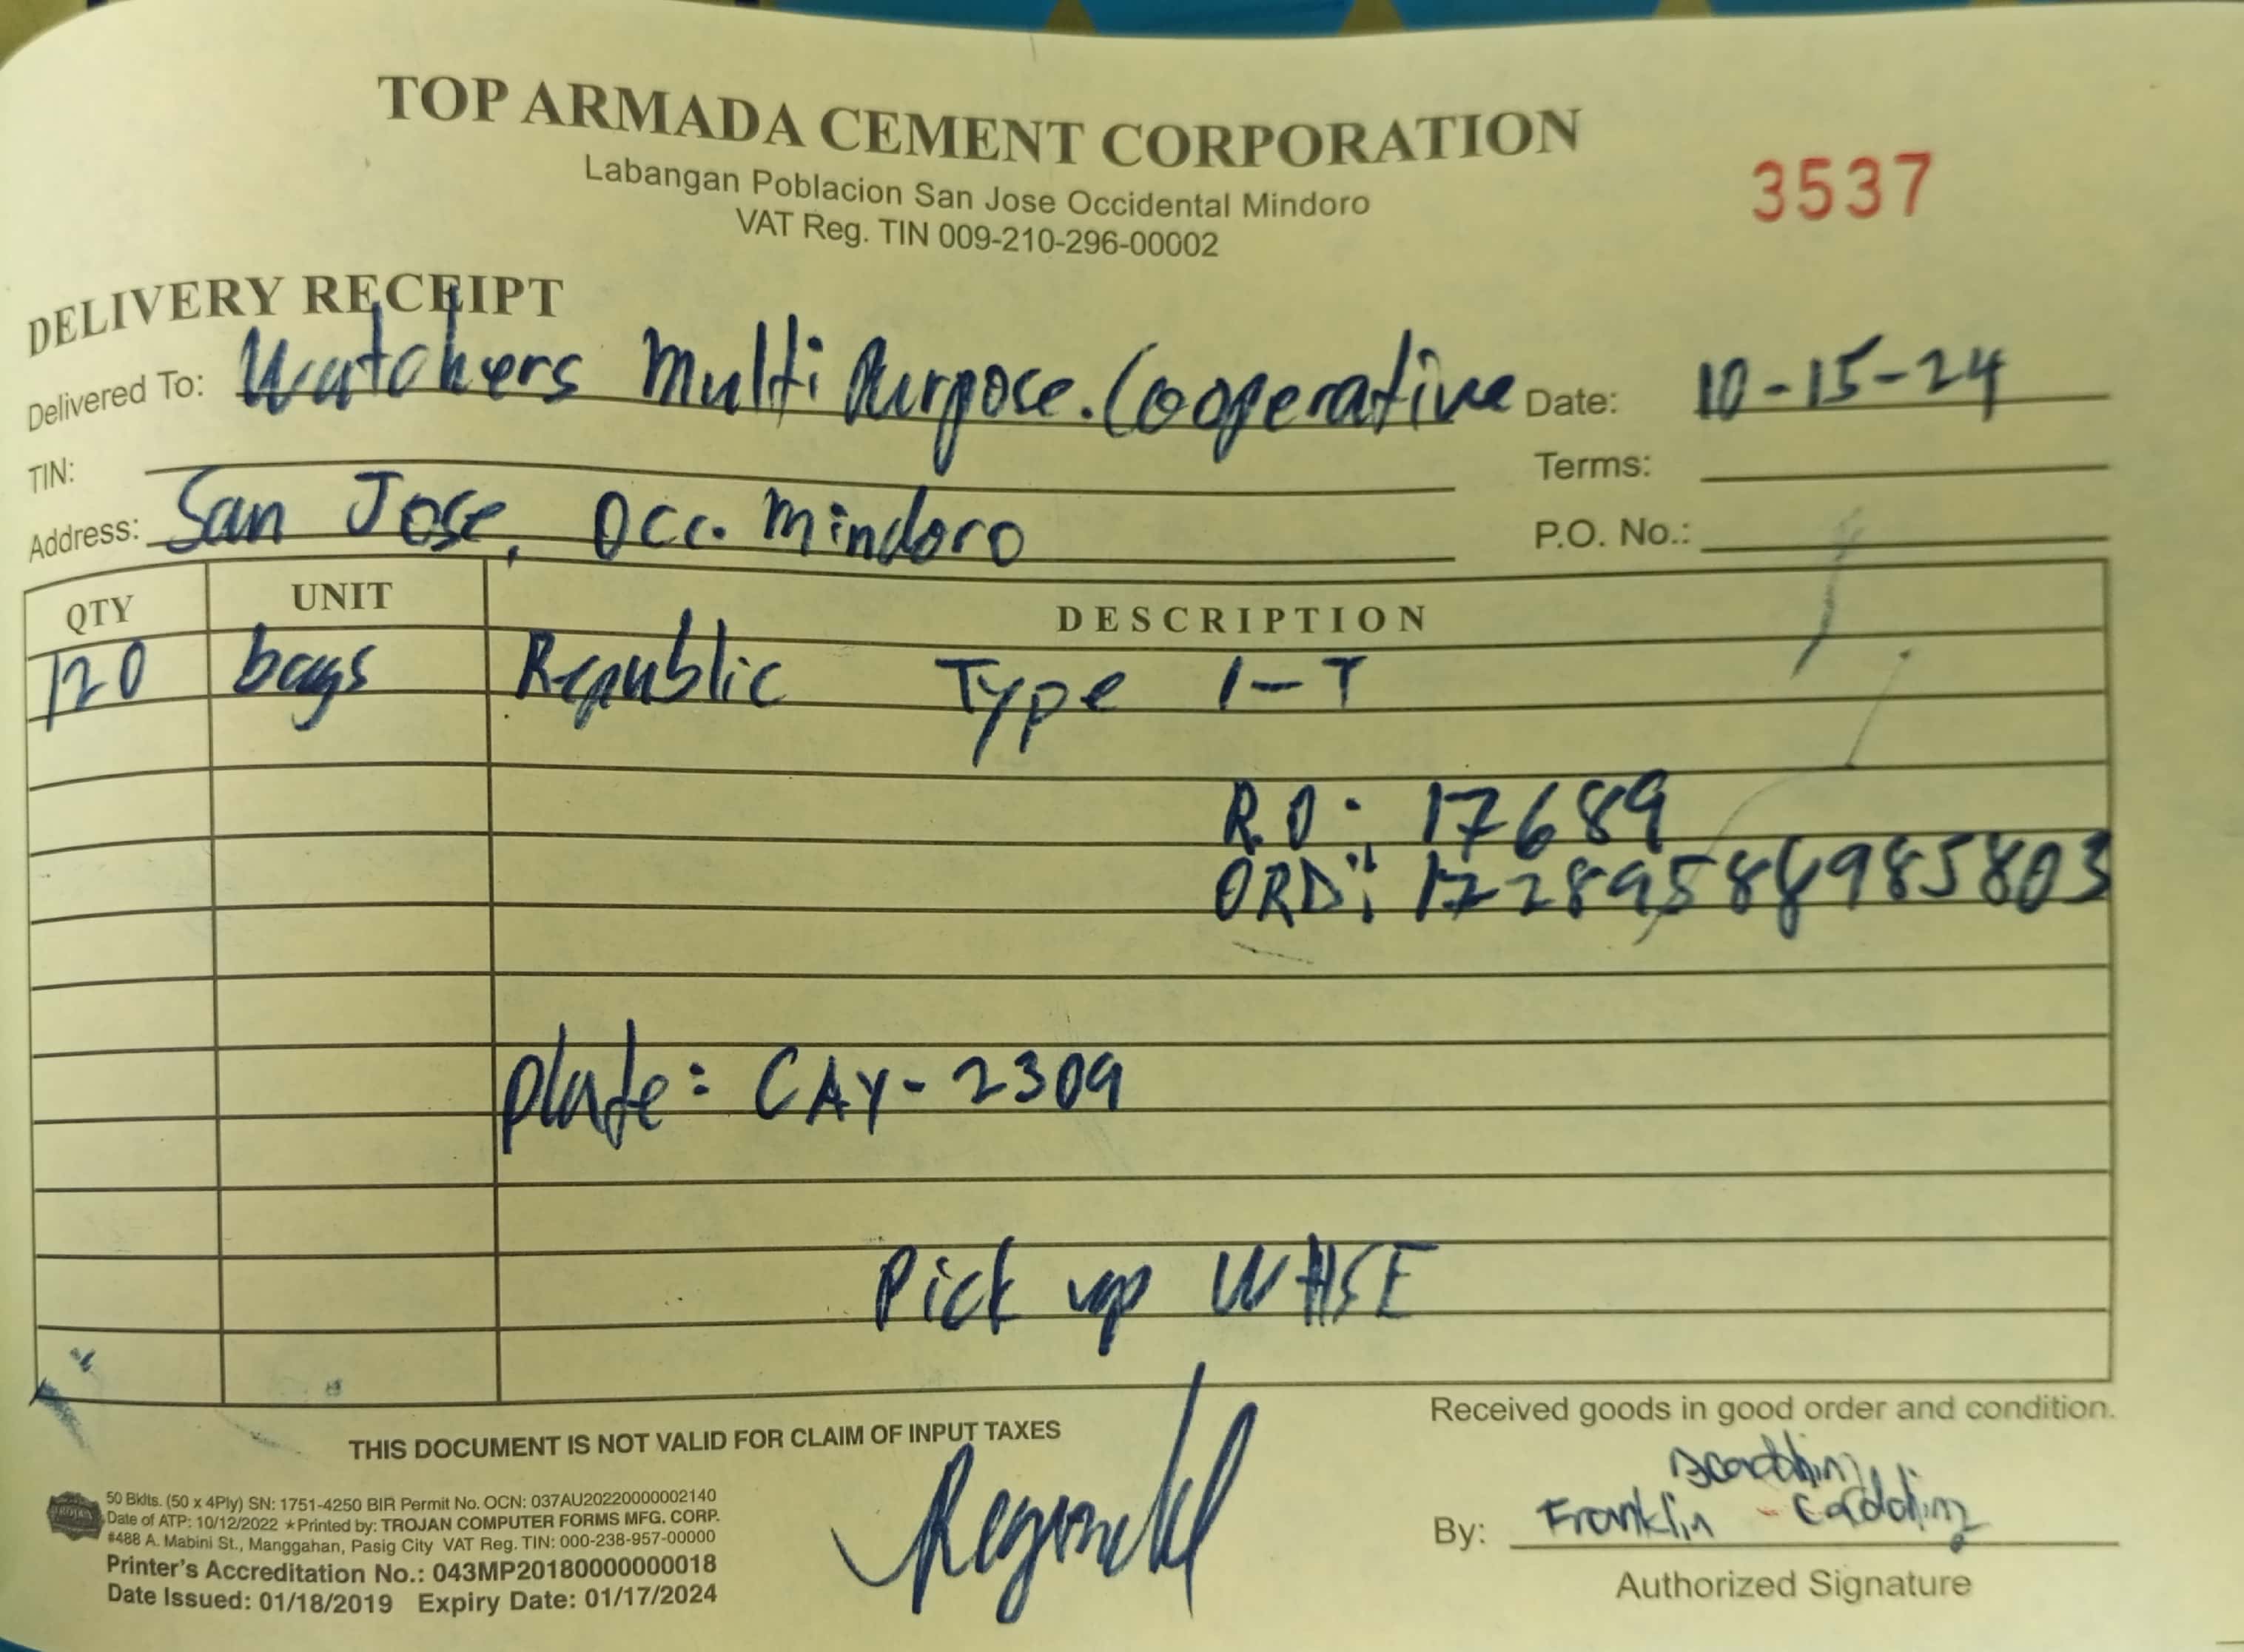 TOP ARMADA CEMENT CORPORATION
Labangan Poblacion San Jose Occidental Mindoro
VAT Reg. TIN 009-210-296-00002
3537
DELIVERY RECEIPT
Delivered To: Watchers Multi Purpose. Cooperative Date: 10-15-24
TIN: Terms:
Address: San Jose, Occ. Mindoro P.O. No.:
QTY UNIT DESCRIPTION
120 bags Republic Type 1-T
R.O: 17689
ORD: 1728958849 85803
Plate: CAY-2309
Pick up WHSE
THIS DOCUMENT IS NOT VALID FOR CLAIM OF INPUT TAXES
Received goods in good order and condition.
50 Bklts. (50 x 4Ply) SN: 1751-4250 BIR Permit No. OCN: 037AU20220000002140
Date of ATP: 10/12/2022 ★Printed by: TROJAN COMPUTER FORMS MFG. CORP.
#488 A. Mabini St., Manggahan, Pasig City VAT Reg. TIN: 000-238-957-00000
Printer's Accreditation No.: 043MP20180000000018
Date Issued: 01/18/2019 Expiry Date: 01/17/2024
By: Franklin
Authorized Signature